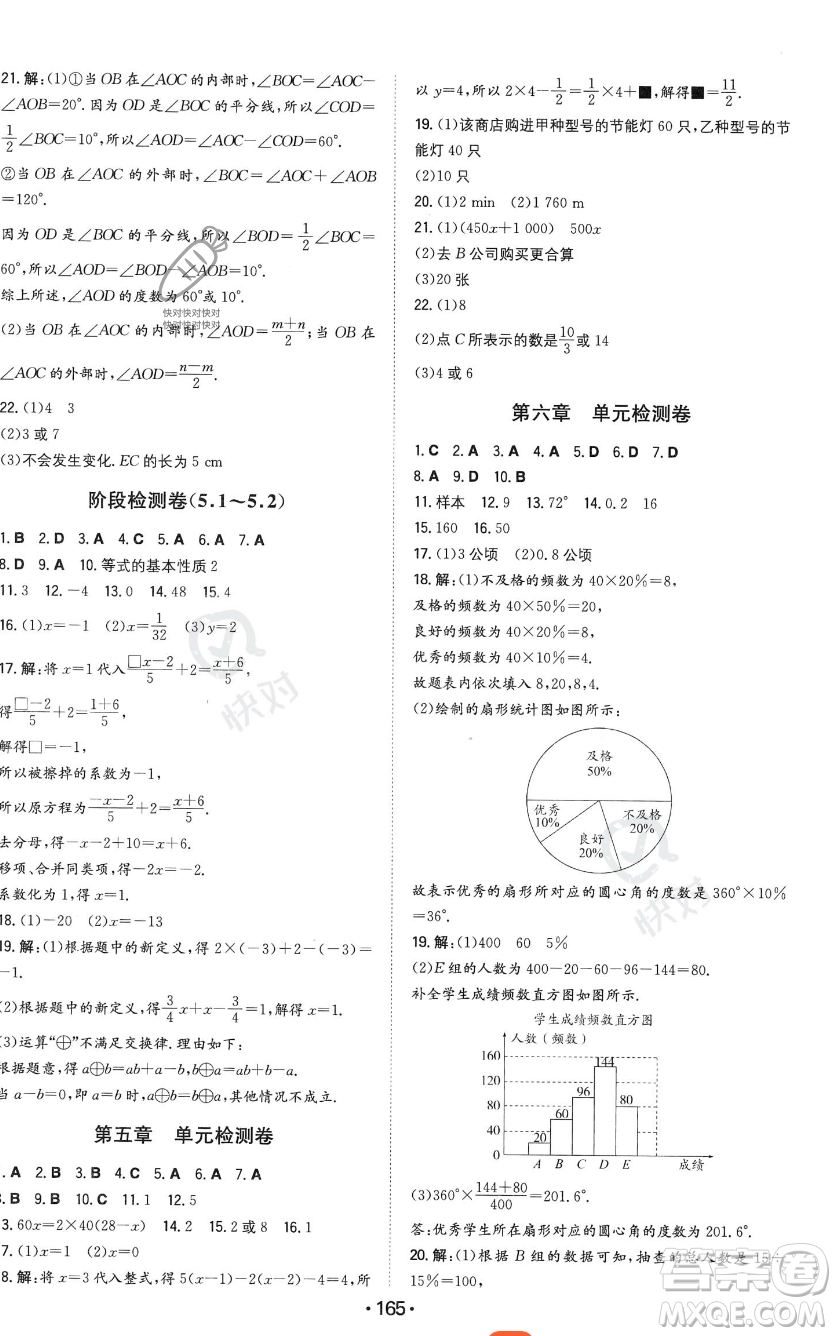 21.解:(1)①当 OB 在∠AOC 的内部时,∠BOC=∠AOC-
∠AOB=20°.因为 OD 是∠BOC 的平分线,所以∠COD=
1/2∠BOC=10°,所以∠AOD=∠AOC-∠COD=60°.
②当 OB 在∠AOC 的外部时,∠BOC=∠AOC+∠AOB
=120°.
因为 OD 是∠BOC 的平分线,所以∠BOD=1/2∠BOC=
60°,所以∠AOD=∠BOD-∠AOB=10°.
综上所述,∠AOD 的度数为 60°或 10°.
(2)当 OB 在∠AOC 的内部时,∠AOD=(m+n)/2;当 OB 在
∠AOC 的外部时,∠AOD=(n-m)/2.
22.(1)4 3
(2)3 或 7
(3)不会发生变化.EC 的长为 5 cm
阶段检测卷(5.1~5.2)
1.B 2.D 3.A 4.C 5.A 6.A 7.A
8.D 9.A 10.等式的基本性质 2
11.3 12.-4 13.0 14.48 15.4
16.(1)x=-1 (2)x=1/32 (3)y=2
17.解:将 x=1 代入(□x-2)/5+2=(x+6)/5,
得(□-2)/5+2=(1+6)/5,
解得□=-1,
所以被擦掉的系数为-1,
所以原方程为(-x-2)/5+2=(x+6)/5.
去分母,得-x-2+10=x+6.
移项、合并同类项,得-2x=-2.
系数化为 1,得 x=1.
18.(1)-20 (2)x=-13
19.解:(1)根据题中的新定义,得 2×(-3)+2-(-3)=
-1.
(2)根据题中的新定义,得3/4x+x-3/4=1,解得 x=1.
(3)运算“⊕”不满足交换律.理由如下:
根据题意,得 a⊕b=ab+a-b,b⊕a=ab+b-a,
当 a-b=0,即 a=b 时,a⊕b=b⊕a,其他情况不成立.
第五章 单元检测卷
1.A 2.B 3.B 4.C 5.A 6.A 7.A
8.B 9.B 10.C 11.1 12.5
3.60x=2×40(28-x) 14.2 15.2 或 8 16.1
7.(1)x=1 (2)x=0
8.解:将 x=3 代入整式,得 5(x-1)-2(x-2)-4=4,所
以 y=4,所以 2×4-1/2=1/2×4+■,解得■=11/2.
19.(1)该商店购进甲种型号的节能灯 60 只,乙种型号的节
能灯 40 只
(2)10 只
20.(1)2 min (2)1 760 m
21.(1)(450x+1 000) 500x
(2)去 B 公司购买更合算
(3)20 张
22.(1)8
(2)点 C 所表示的数是10/3或 14
(3)4 或 6
第六章 单元检测卷
1.C 2.A 3.A 4.A 5.D 6.D 7.D
8.A 9.D 10.B
11.样本 12.9 13.72° 14.0.2 16
15.160 16.50
17.(1)3 公顷 (2)0.8 公顷
18.解:(1)不及格的频数为 40×20%=8,
及格的频数为 40×50%=20,
良好的频数为 40×20%=8,
优秀的频数为 40×10%=4.
故题表内依次填入 8,20,8,4.
(2)绘制的扇形统计图如图所示:
及格
50%
优秀
10%
不及格
20%
良好
20%
故表示优秀的扇形所对应的圆心角的度数是 360°×10%
=36°.
19.解:(1)400 60 5%
(2)E 组的人数为 400-20-60-96-144=80,
补全学生成绩频数直方图如图所示.
学生成绩频数直方图
人数(频数)
160
120
80
40
0
20
60
96
144
80
A B C D E 成绩
(3)360°×(144+80)/400=201.6°.
答:优秀学生所在扇形对应的圆心角的度数为 201.6°.
20.解:(1)根据 B 组的数据可知,抽查的总人数是 15÷
15%=100,
·165·
快对快对快对
快对快对快对
快对
快对
答案圈
MXQE.COM